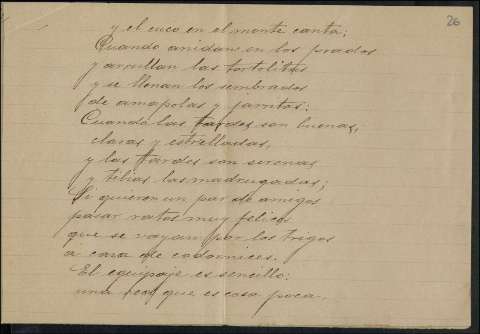 26
y el cuco en el monte canta;
Cuando anidan en los prados
y arrullan las tortolitas
y se llenan los sembrados
de amapolas y jarritos:
Cuando las tardes son buenas,
claras y estrelladas,
y las tardes son serenas
y tibias las madrugadas;
Si quieren un par de amigos
pasar ratos muy felices
que se vayan por los trigos
á caza de codornices.
El equipaje es sencillo:
una red que es cosa poca,